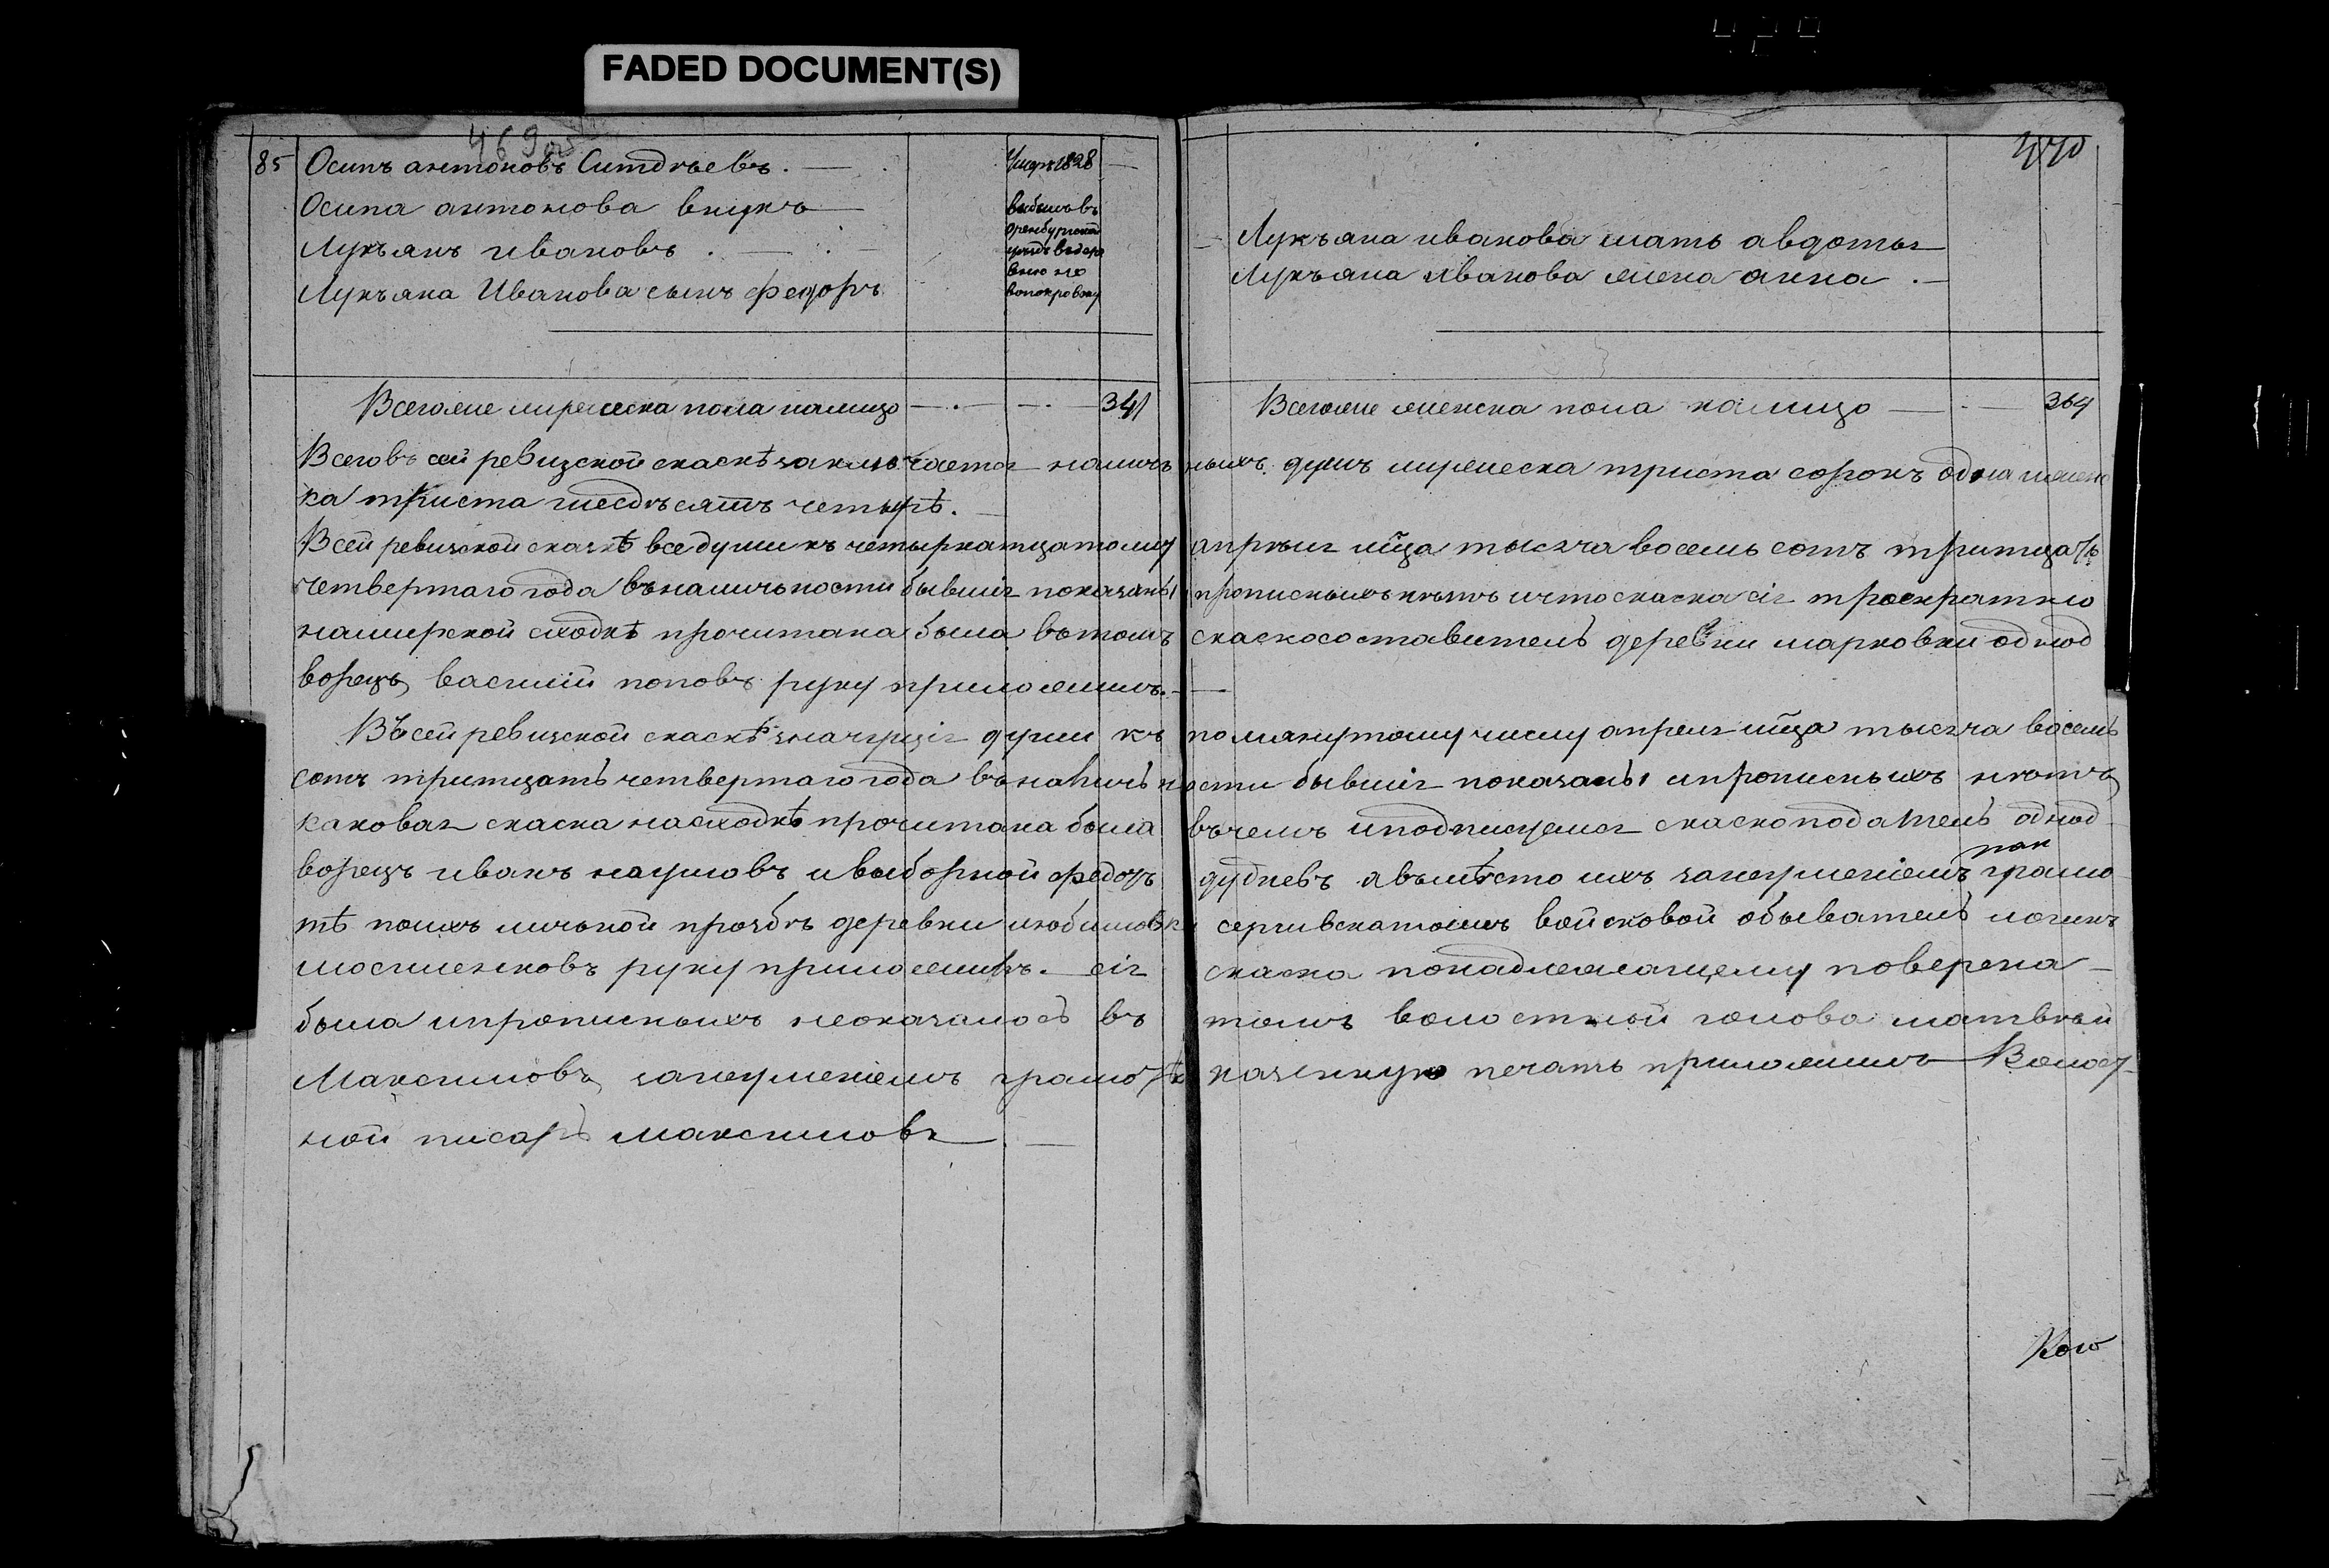 FADED DOCUMENT(S)
469 об
85 Осипъ антоновъ Ситдѣевъ. Умеръ 1828
Осипа антонова внукъ
Лукъянъ ивановъ
Лукъяна Иванова сынъ федоръ
выбыли въ
оренбургской
уѣздъ въ дере
вню но
вопокровку
Всегоже мужеска пола налицо 341
470
Лукъяна иванова мать авдотья
Лукъяна иванова жена анна
Всегоже женска пола налицо 364
Всего въ сей ревизской сказкѣ заключается наличъныхъ душъ мужеска триста сорокъ одна женс
ка триста шесдъсятъ четырѣ.
В сей ревизской сказкѣ все души къ четырнатцатому апрѣля мца тысяча восемь сотъ тритцать
четвертаго года въналичьности бывшія показаны прописныхъ нѣтъ ичто сказка сія троекратно
намирской сходкѣ прочитана была вътомъ сказкосоставитель деревни марковки однод
ворецъ василий поповъ руку приложилъ.
Въ сей ревизской сказкѣ значущія души къ помянутому числу апреля мца тысяча восемь
сотъ тритцать четвертаго года въ наличьности бывшія показаны ипрописныхъ нѣтъ
каковая сказка насходкѣ прочитана была вьчемъ иподписуемся сказкоподатель однод
ворецъ иванъ наумовъ и выборной федоръ дудневъ авьмѣсто ихъ занеумениемъ грамо
тѣ поихъ личьной прозбѣ деревни любимовки войсковой обыватель логинъ
руку приложилъ. сія сказка понадлежащему поверена
была ипрописныхъ неоказалось въ томъ волостной голова матвѣй
Максимовъ занеумениемъ грамотѣ казенную печать приложилъ Волос
ной писарь максимовъ